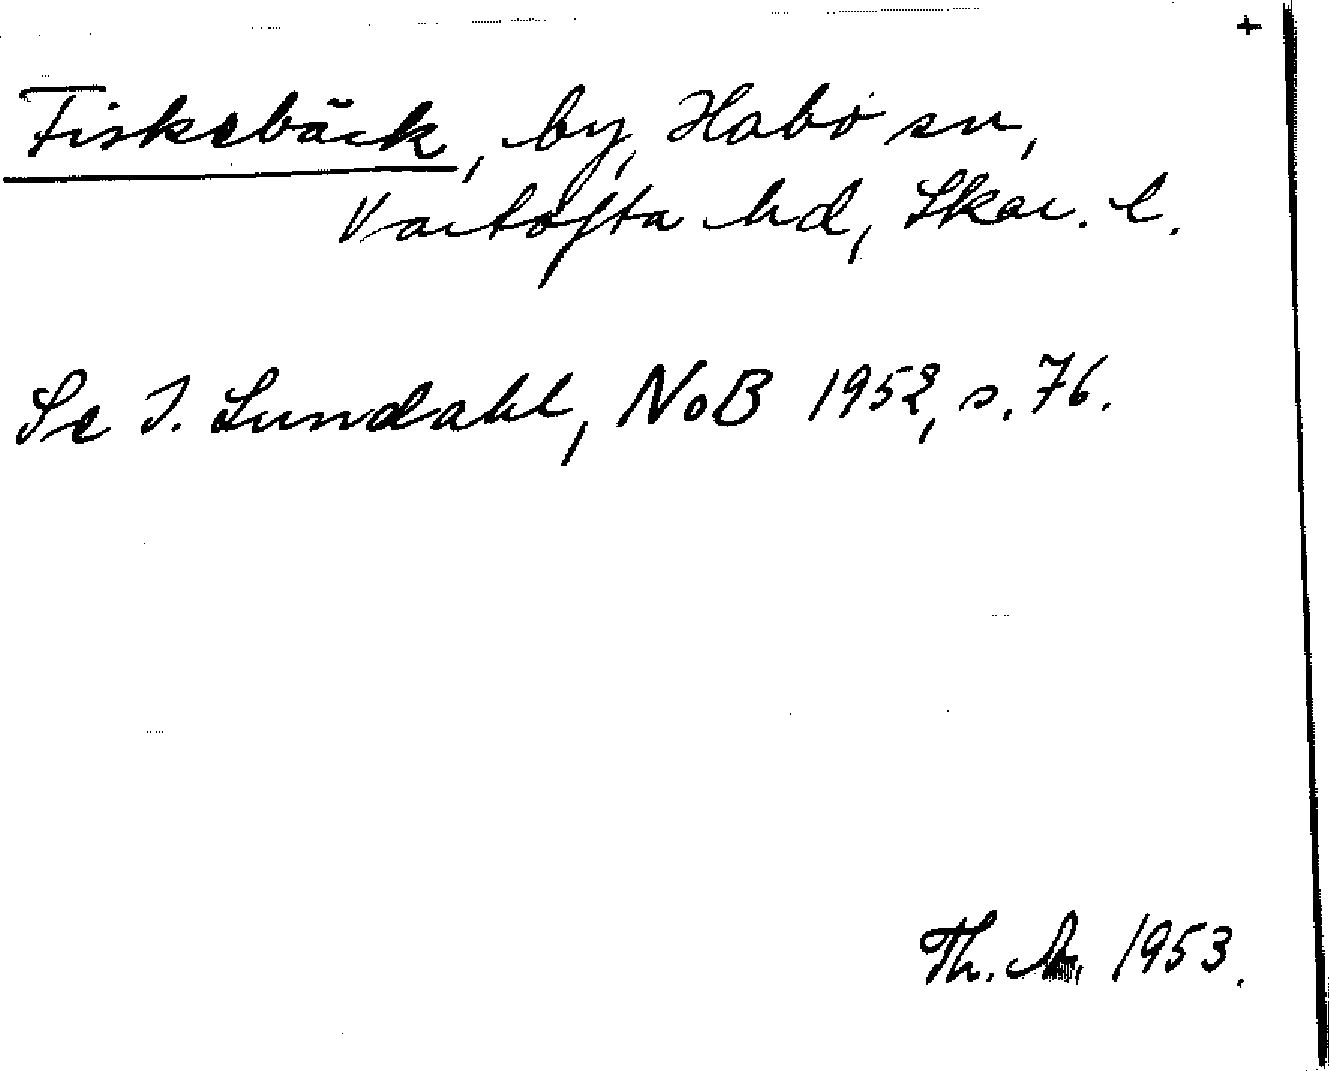 +
Fiskebäck, by, Habo sn,
Vartofta hd, Skar. l.
Se I. Lundahl, NoB 1952, s. 76.
Th. 1953.